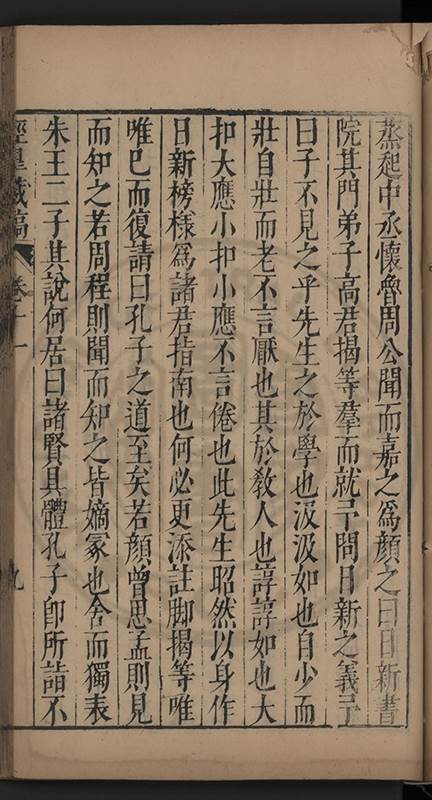 蒸起中丞懷魯周公聞而嘉之爲顏之曰日新書
院其門弟子高君揭等羣而就予問日新之義予
曰子不見之乎先生之於學也汲汲如也自少而
壯自壯而老不言厭也其於敎人也諄諄如也大
扣大應小扣小應不言倦也此先生昭然以身作
日新榜樣爲諸君指南也何必更添註脚揭等唯
唯已而復請曰孔子之道至矣若顏曾思孟則見
而知之若周程則聞而知之皆嫡冡也舍而獨表
朱王二子其說何居曰諸賢具體孔子卽所詣不
涇皋藏稿 卷十一 九